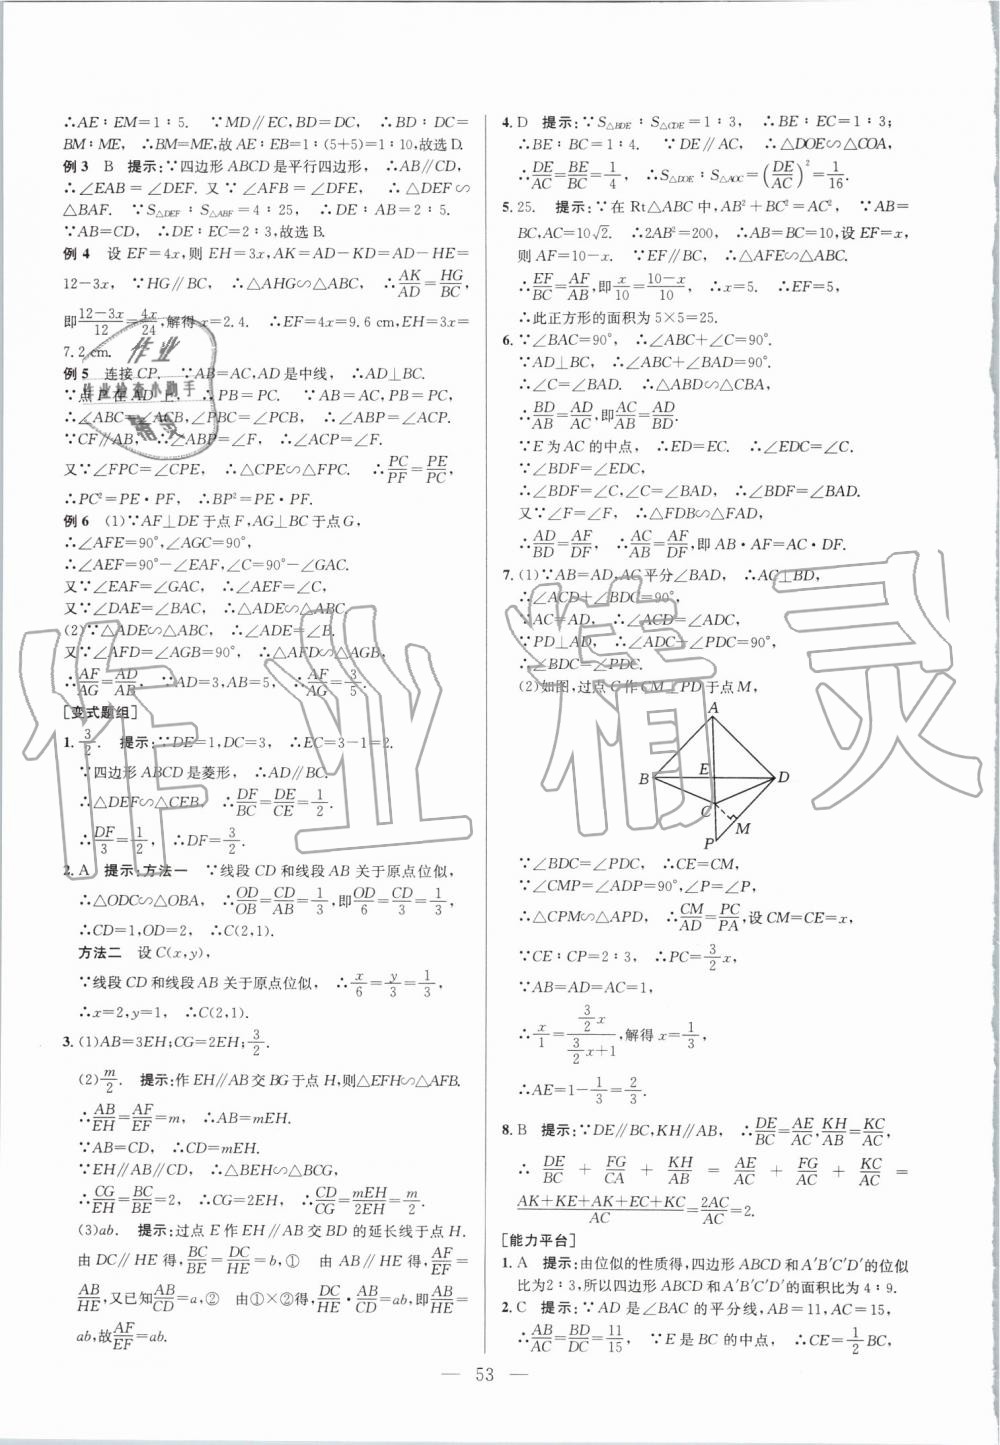 ∴AE∶EM=1∶5. ∵MD∥EC,BD=DC, ∴BD∶DC=
BM∶ME, ∴BM=ME,故AE∶EB=1∶(5+5)=1∶10,故选D.
例3 B 提示:∵四边形ABCD是平行四边形, ∴AB∥CD,
∴∠EAB=∠DEF. 又∵∠AFB=∠DFE, ∴△DEF∽
△BAF. ∵S△DEF∶S△ABF=4∶25, ∴DE∶AB=2∶5.
∵AB=CD, ∴DE∶EC=2∶3,故选B.
例4 设EF=4x,则EH=3x,AK=AD-KD=AD-HE=
12-3x, ∵HG∥BC, ∴△AHG∽△ABC, ∴AK/AD=HG/BC,
即(12-3x)/12=4x/24,解得x=2.4. ∴EF=4x=9.6 cm,EH=3x=
7.2 cm.
例5 连接CP. ∵AB=AC,AD是中线, ∴AD⊥BC.
∵点P在AD上, ∴PB=PC. ∵AB=AC,PB=PC,
∴∠ABC=∠ACB,∠PBC=∠PCB, ∴∠ABP=∠ACP.
∵CF∥AB, ∴∠ABP=∠F, ∴∠ACP=∠F.
又∵∠FPC=∠CPE, ∴△CPE∽△FPC. ∴PC/PF=PE/PC,
∴PC²=PE·PF, ∴BP²=PE·PF.
例6 (1)∵AF⊥DE于点F,AG⊥BC于点G,
∴∠AFE=90°,∠AGC=90°.
∴∠AEF=90°-∠EAF,∠C=90°-∠GAC.
又∵∠EAF=∠GAC, ∴∠AEF=∠C.
又∵∠DAE=∠BAC, ∴△ADE∽△ABC.
(2)∵△ADE∽△ABC, ∴∠ADE=∠B.
又∵∠AFD=∠AGB=90°, ∴△AFD∽△AGB,
∴AF/AG=AD/AB, ∵AD=3,AB=5, ∴AF/AG=3/5.
[变式题组]
1. 3/2. 提示:∵DE=1,DC=3, ∴EC=3-1=2.
∵四边形ABCD是菱形, ∴AD∥BC.
∴△DEF∽△CEB, ∴DF/BC=DE/CE=1/2,
∴DF/3=1/2, ∴DF=3/2.
2. A 提示:方法一 ∵线段CD和线段AB关于原点位似,
∴△ODC∽△OBA, ∴OD/OB=CD/AB=1/3,即OD/6=CD/3=1/3,
∴CD=1,OD=2, ∴C(2,1).
方法二 设C(x,y),
∵线段CD和线段AB关于原点位似, ∴x/6=y/3=1/3,
∴x=2,y=1, ∴C(2,1).
3. (1)AB=3EH;CG=2EH;3/2.
(2)m/2. 提示:作EH∥AB交BG于点H,则△EFH∽△AFB.
∴AB/EH=AF/EF=m, ∴AB=mEH.
∵AB=CD, ∴CD=mEH.
∵EH∥AB∥CD, ∴△BEH∽△BCG,
∴CG/EH=BC/BE=2, ∴CG=2EH, ∴CD/CG=mEH/2EH=m/2.
(3)ab. 提示:过点E作EH∥AB交BD的延长线于点H.
由DC∥HE得,BC/BE=DC/HE=b,① 由AB∥HE得,AF/EF=
AB/HE,又已知AB/CD=a,② 由①×②得,DC/HE·AB/CD=AB/HE=
ab,故AF/EF=ab.
4. D 提示:∵S△BDE∶S△CDE=1∶3, ∴BE∶EC=1∶3;
∴BE∶BC=1∶4. ∵DE∥AC, ∴△DOE∽△COA,
∴DE/AC=BE/BC=1/4, ∴S△DOE∶S△AOC=(DE/AC)²=1/16.
5. 25. 提示:∵在Rt△ABC中,AB²+BC²=AC², ∵AB=
BC,AC=10√2. ∴2AB²=200, ∴AB=BC=10,设EF=x,
则AF=10-x. ∵EF∥BC, ∴△AFE∽△ABC.
∴EF/BC=AF/AB,即x/10=(10-x)/10, ∴x=5. ∴EF=5,
∴此正方形的面积为5×5=25.
6. ∵∠BAC=90°, ∴∠ABC+∠C=90°.
∵AD⊥BC, ∴∠ABC+∠BAD=90°.
∴∠C=∠BAD. ∴△ABD∽△CAD,
∴BD/AD=AB/AC,即AC/AB=AD/BD.
∵E为AC的中点, ∴ED=EC. ∴∠EDC=∠C.
∵∠BDF=∠EDC,
∴∠BDF=∠C=∠BAD, ∴∠BDF=∠BAD.
又∵∠F=∠F, ∴△FDB∽△FAD,
∴AD/BD=AF/DF, ∴AC/AB=AF/DF,即AB·AF=AC·DF.
7. (1)∵AB=AD,AC平分∠BAD, ∴AC⊥BD,
∴∠ACD+∠BDC=90°,
∵AC=AD, ∴∠ACD=∠ADC,
∵PD⊥AD, ∴∠ADC+∠PDC=90°,
∴∠BDC=∠PDC.
(2)如图,过点C作CM⊥PD于点M,
A
B
E
D
C
M
P
∵∠BDC=∠PDC, ∴CE=CM.
∵∠CMP=∠ADP=90°,∠P=∠P,
∴△CPM∽△APD, ∴CM/AD=PC/PA,设CM=CE=x,
∵CE∶CP=2∶3, ∴PC=3/2x,
∵AB=AD=AC=1,
∴x/1=(3/2x)/(3/2x+1),解得x=1/3,
∴AE=1-1/3=2/3.
8. B 提示:∵DE∥BC,KH∥AB, ∴DE/BC=AE/AC,KH/AB=KC/AC,
∴DE/BC+FG/CA+KH/AB=AE/AC+FG/AC+KC/AC=
(AK+KE+AK+EC+KC)/AC=2AC/AC=2.
[能力平台]
1. A 提示:由位似的性质得,四边形ABCD和A′B′C′D′的位似
比为2∶3,所以四边形ABCD和A′B′C′D′的面积比为4∶9.
2. C 提示:∵AD是∠BAC的平分线,AB=11,AC=15,
∴AB/AC=BD/DC=11/15, ∵E是BC的中点, ∴CE=1/2BC,
— 53 —
作业精灵
作业
作业检查小助手
精灵